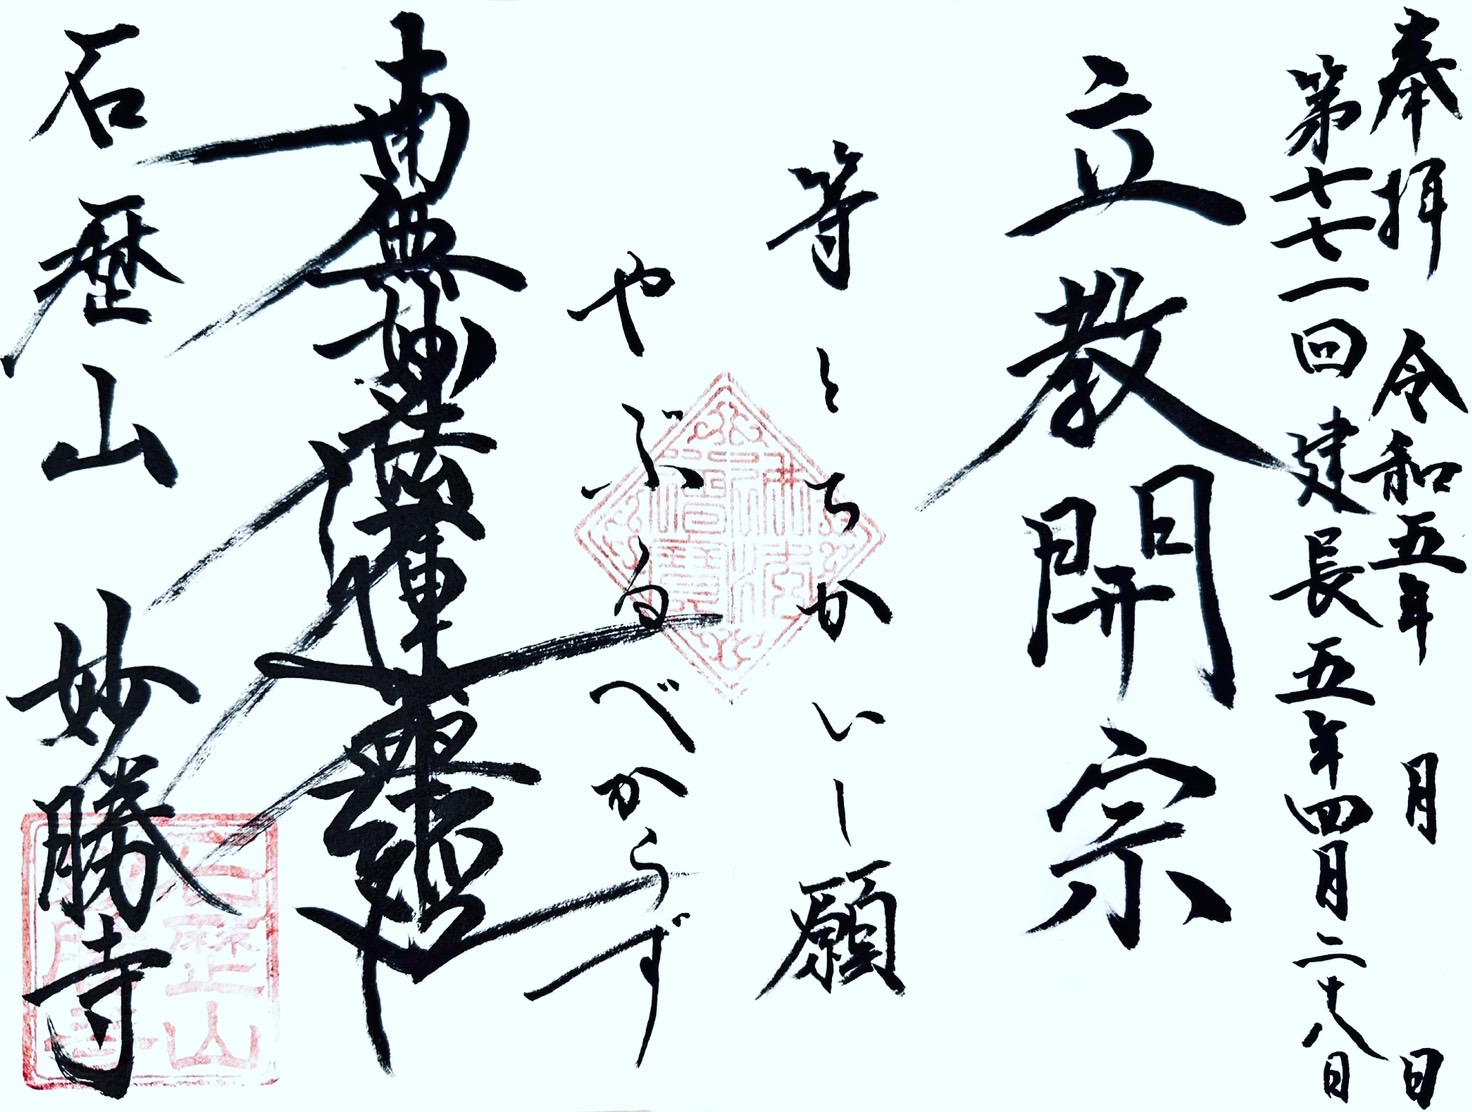 奉拝 令和五年 月 日
第七七一回 建長五年四月二十八日
立教開宗
等とちかいし願
やぶるべからず
南無妙法蓮華経
石歴山 妙勝寺
石歴山妙勝寺